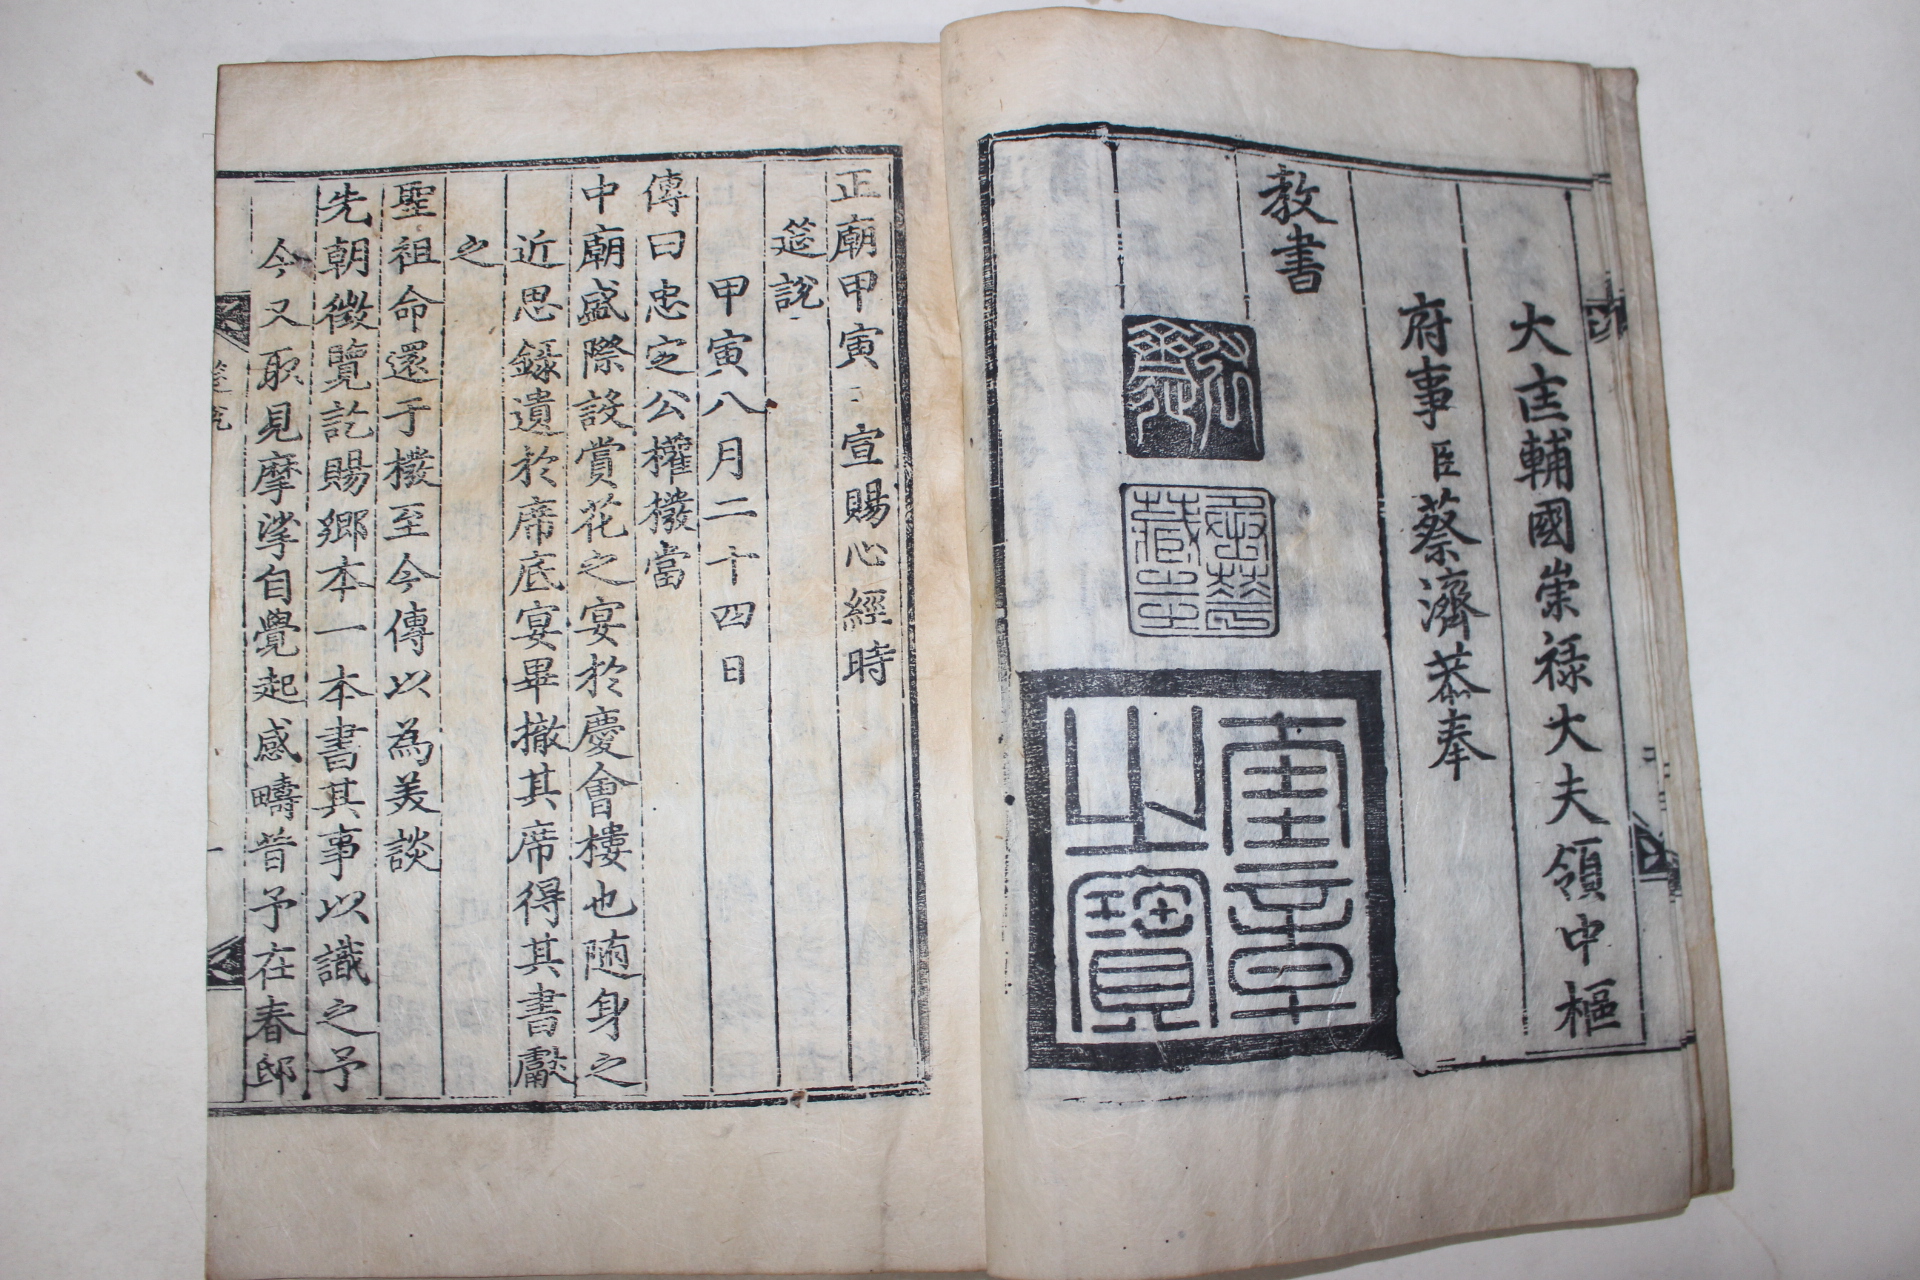 大匡輔國崇祿大夫領中樞
府事臣蔡濟恭奉
教書
弘齋
奎章之寶
正廟甲寅 宣賜心經時
筵說
甲寅八月二十四日
傳曰忠定公權橃當
中廟盛際設賞花之宴於慶會樓也随身之
近思錄遺於席底宴畢撤其席得其書獻
之
聖祖命還于橃至今傳以為美談
先朝徵覽訖賜鄉本一本書其事以識之予
今又取見摩挲自覺起感疇昔予在春邸
筵說
一